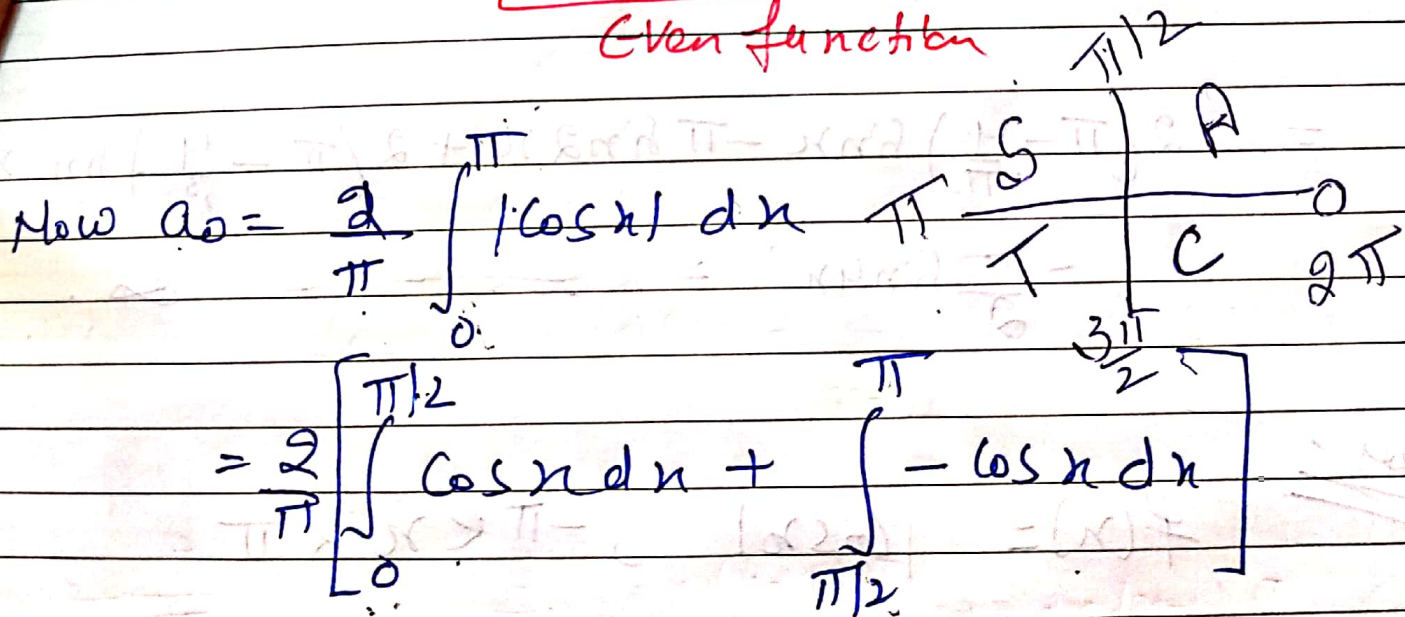 Even function
π/2
S A
Now a₀ = 2/π ∫₀^π |cosx| dx π 0
T C 2π
3π/2
= 2/π [ ∫₀^{π/2} cosx dx + ∫_{π/2}^π - cosx dx ]